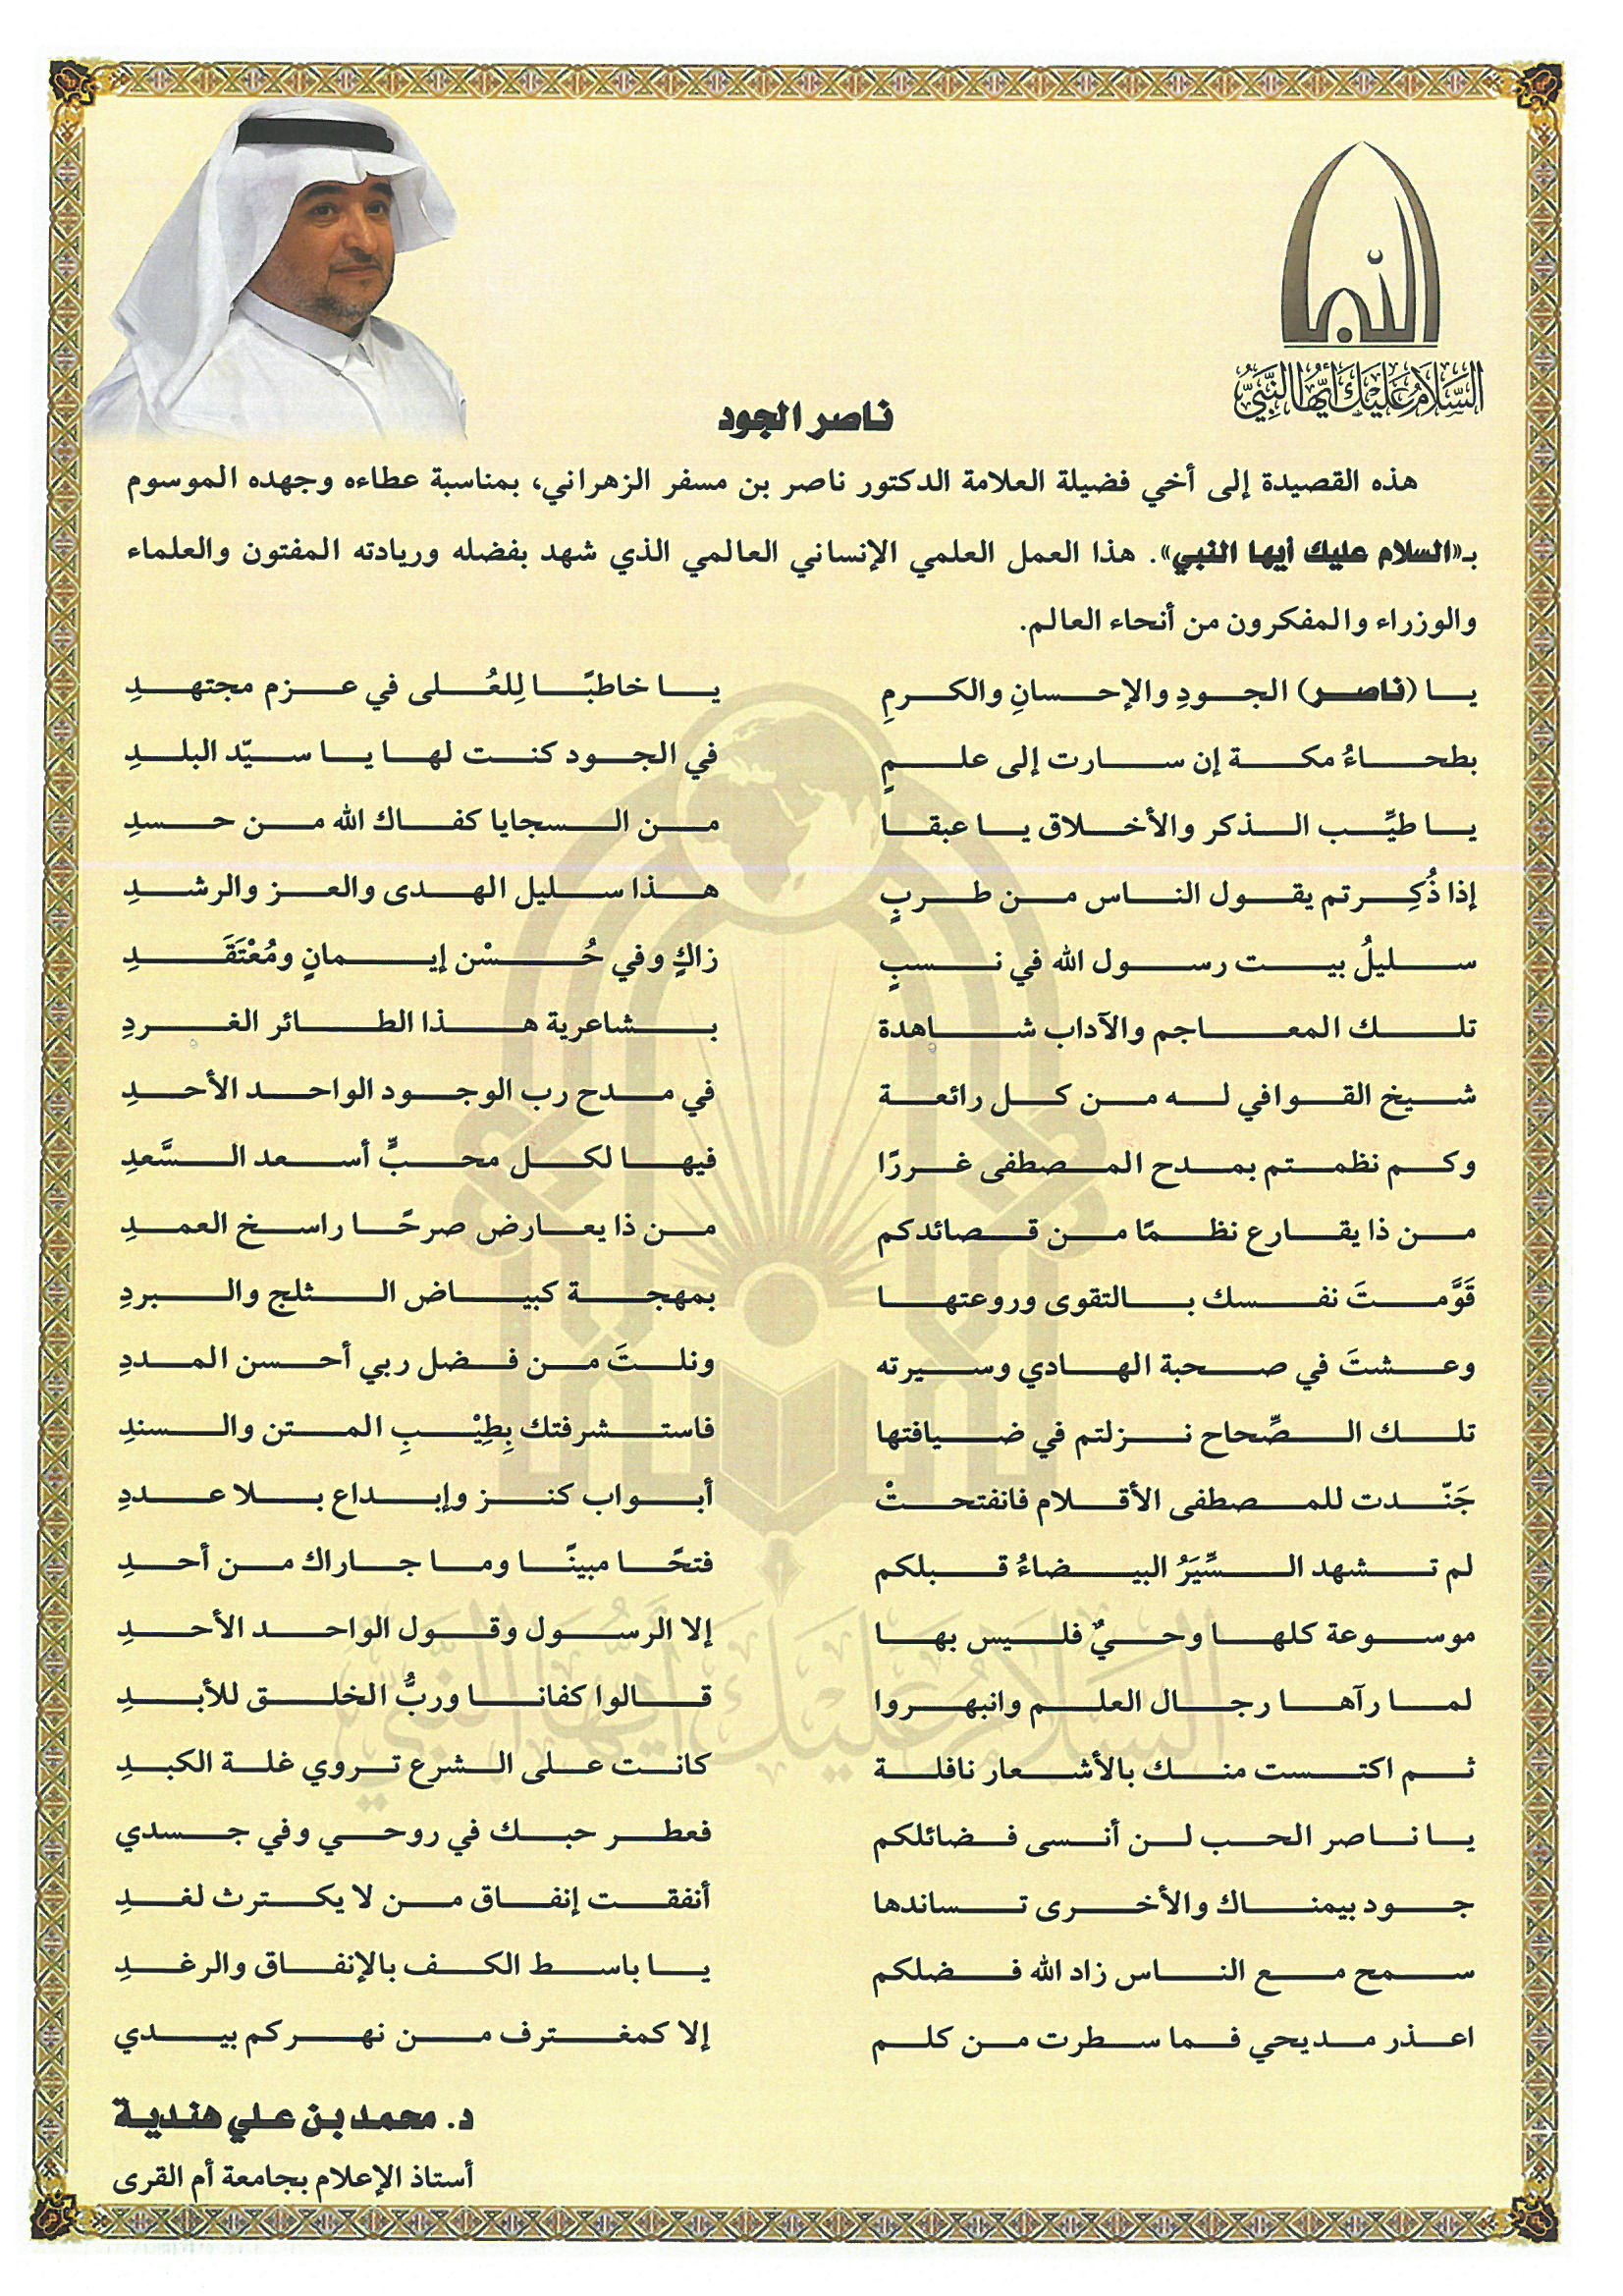 السَّلَامُ عَلَيْكَ أَيُّهَا النَّبِيُّ
ناصر الجود
هذه القصيدة إلى أخي فضيلة العلامة الدكتور ناصر بن مسفر الزهراني، بمناسبة عطاءه وجهده الموسوم
بـ«السلام عليك أيها النبي». هذا العمل العلمي الإنساني العالمي الذي شهد بفضله وريادته المفتون والعلماء
والوزراء والمفكرون من أنحاء العالم.
يا (ناصر) الجودِ والإحسانِ والكرمِ يا خاطبًا لِلعُلى في عزم مجتهدِ
بطحاءُ مكة إن سارت إلى علمٍ في الجود كنت لها يا سيّد البلدِ
يا طيِّب الذكر والأخلاق يا عبقا من السجايا كفاك الله من حسدِ
إذا ذُكِرتم يقول الناس من طربٍ هذا سليل الهدى والعز والرشدِ
سليلُ بيت رسول الله في نسبٍ زاكٍ وفي حُسْن إيمانٍ ومُعْتَقَدِ
تلك المعاجم والآداب شاهدة بشاعرية هذا الطائر الغردِ
شيخ القوافي له من كل رائعة في مدح رب الوجود الواحد الأحدِ
وكم نظمتم بمدح المصطفى غررًا فيها لكل محبٍّ أسعد السَّعدِ
من ذا يقارع نظمًا من قصائدكم من ذا يعارض صرحًا راسخ العمدِ
قَوَّمتَ نفسك بالتقوى وروعتها بمهجة كبياض الثلج والبردِ
وعشتَ في صحبة الهادي وسيرته ونلتَ من فضل ربي أحسن المددِ
تلك الصِّحاح نزلتم في ضيافتها فاستشرفتك بِطِيْبِ المتن والسندِ
جَنّدت للمصطفى الأقلام فانفتحتْ أبواب كنز وإبداع بلا عددِ
لم تشهد السِّيَرُ البيضاءُ قبلكم فتحًا مبينًا وما جاراك من أحدِ
موسوعة كلها وحيٌ فليس بها إلا الرسول وقول الواحد الأحدِ
لما رآها رجال العلم وانبهروا قالوا كفانا وربُّ الخلق للأبدِ
ثم اكتست منك بالأشعار نافلة كانت على الشرع تروي غلة الكبدِ
يا ناصر الحب لن أنسى فضائلكم فعطر حبك في روحي وفي جسدي
جود بيمناك والأخرى تساندها أنفقت إنفاق من لا يكترث لغدِ
سمح مع الناس زاد الله فضلكم يا باسط الكف بالإنفاق والرغدِ
اعذر مديحي فما سطرت من كلم إلا كمغترف من نهركم بيدي
د. محمد بن علي هندية
أستاذ الإعلام بجامعة أم القرى